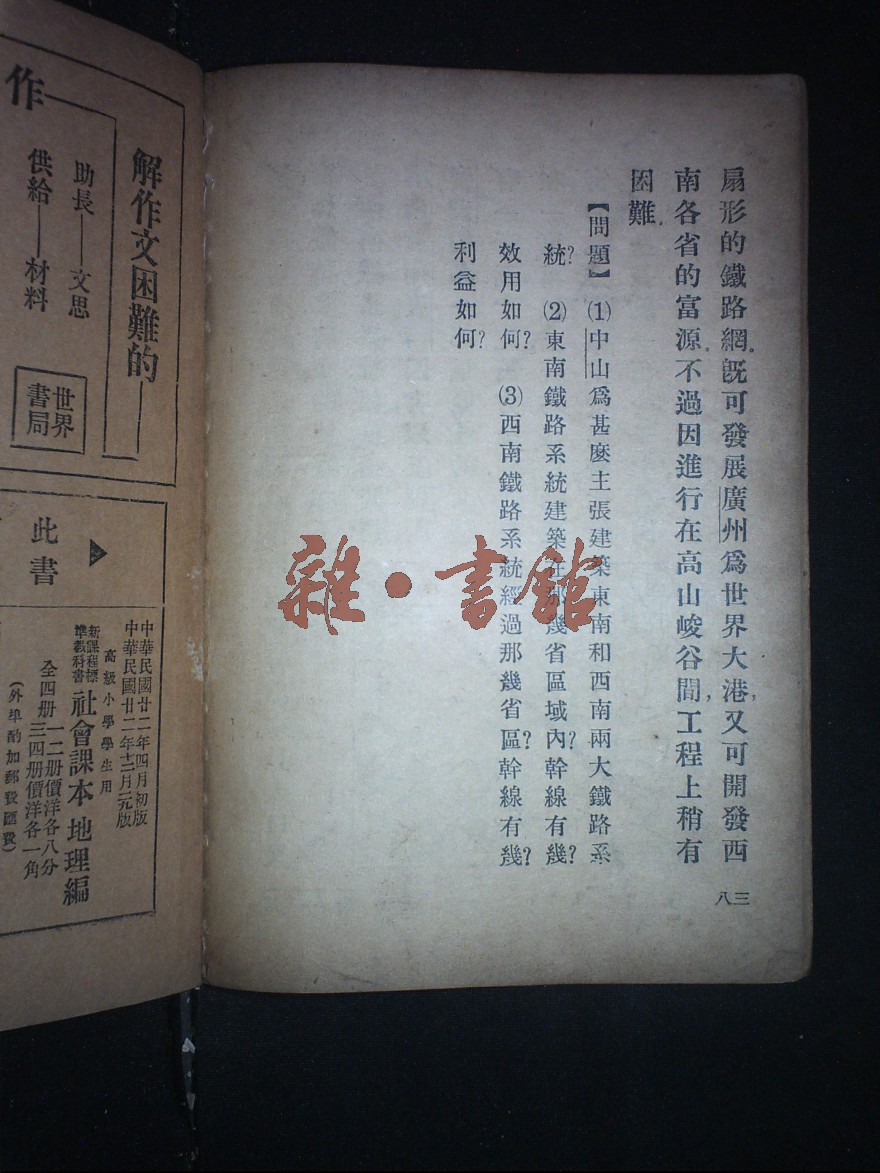 扇形的鐵路網。既可發展廣州爲世界大港，又可開發西
南各省的富源。不過因進行在高山峻谷間，工程上稍有
困難。
【問題】⑴中山爲甚麼主張建築東南和西南兩大鐵路系
統？　⑵東南鐵路系統建築在那幾省區域內？幹線有幾？
效用如何？　⑶西南鐵路系統經過那幾省區？幹線有幾？
利益如何？
八三
雜·書館
解作文困難的——
助長——文思
供給——材料
作
世界
書局
▶
此書
中華民國廿二年四月初版
中華民國廿二年十二月元版
高級小學學生用
新課程標
準教科書
社會課本地理編
全四册
一二册價洋各八分
三四册價洋各一角
（外埠酌加郵費匯費）